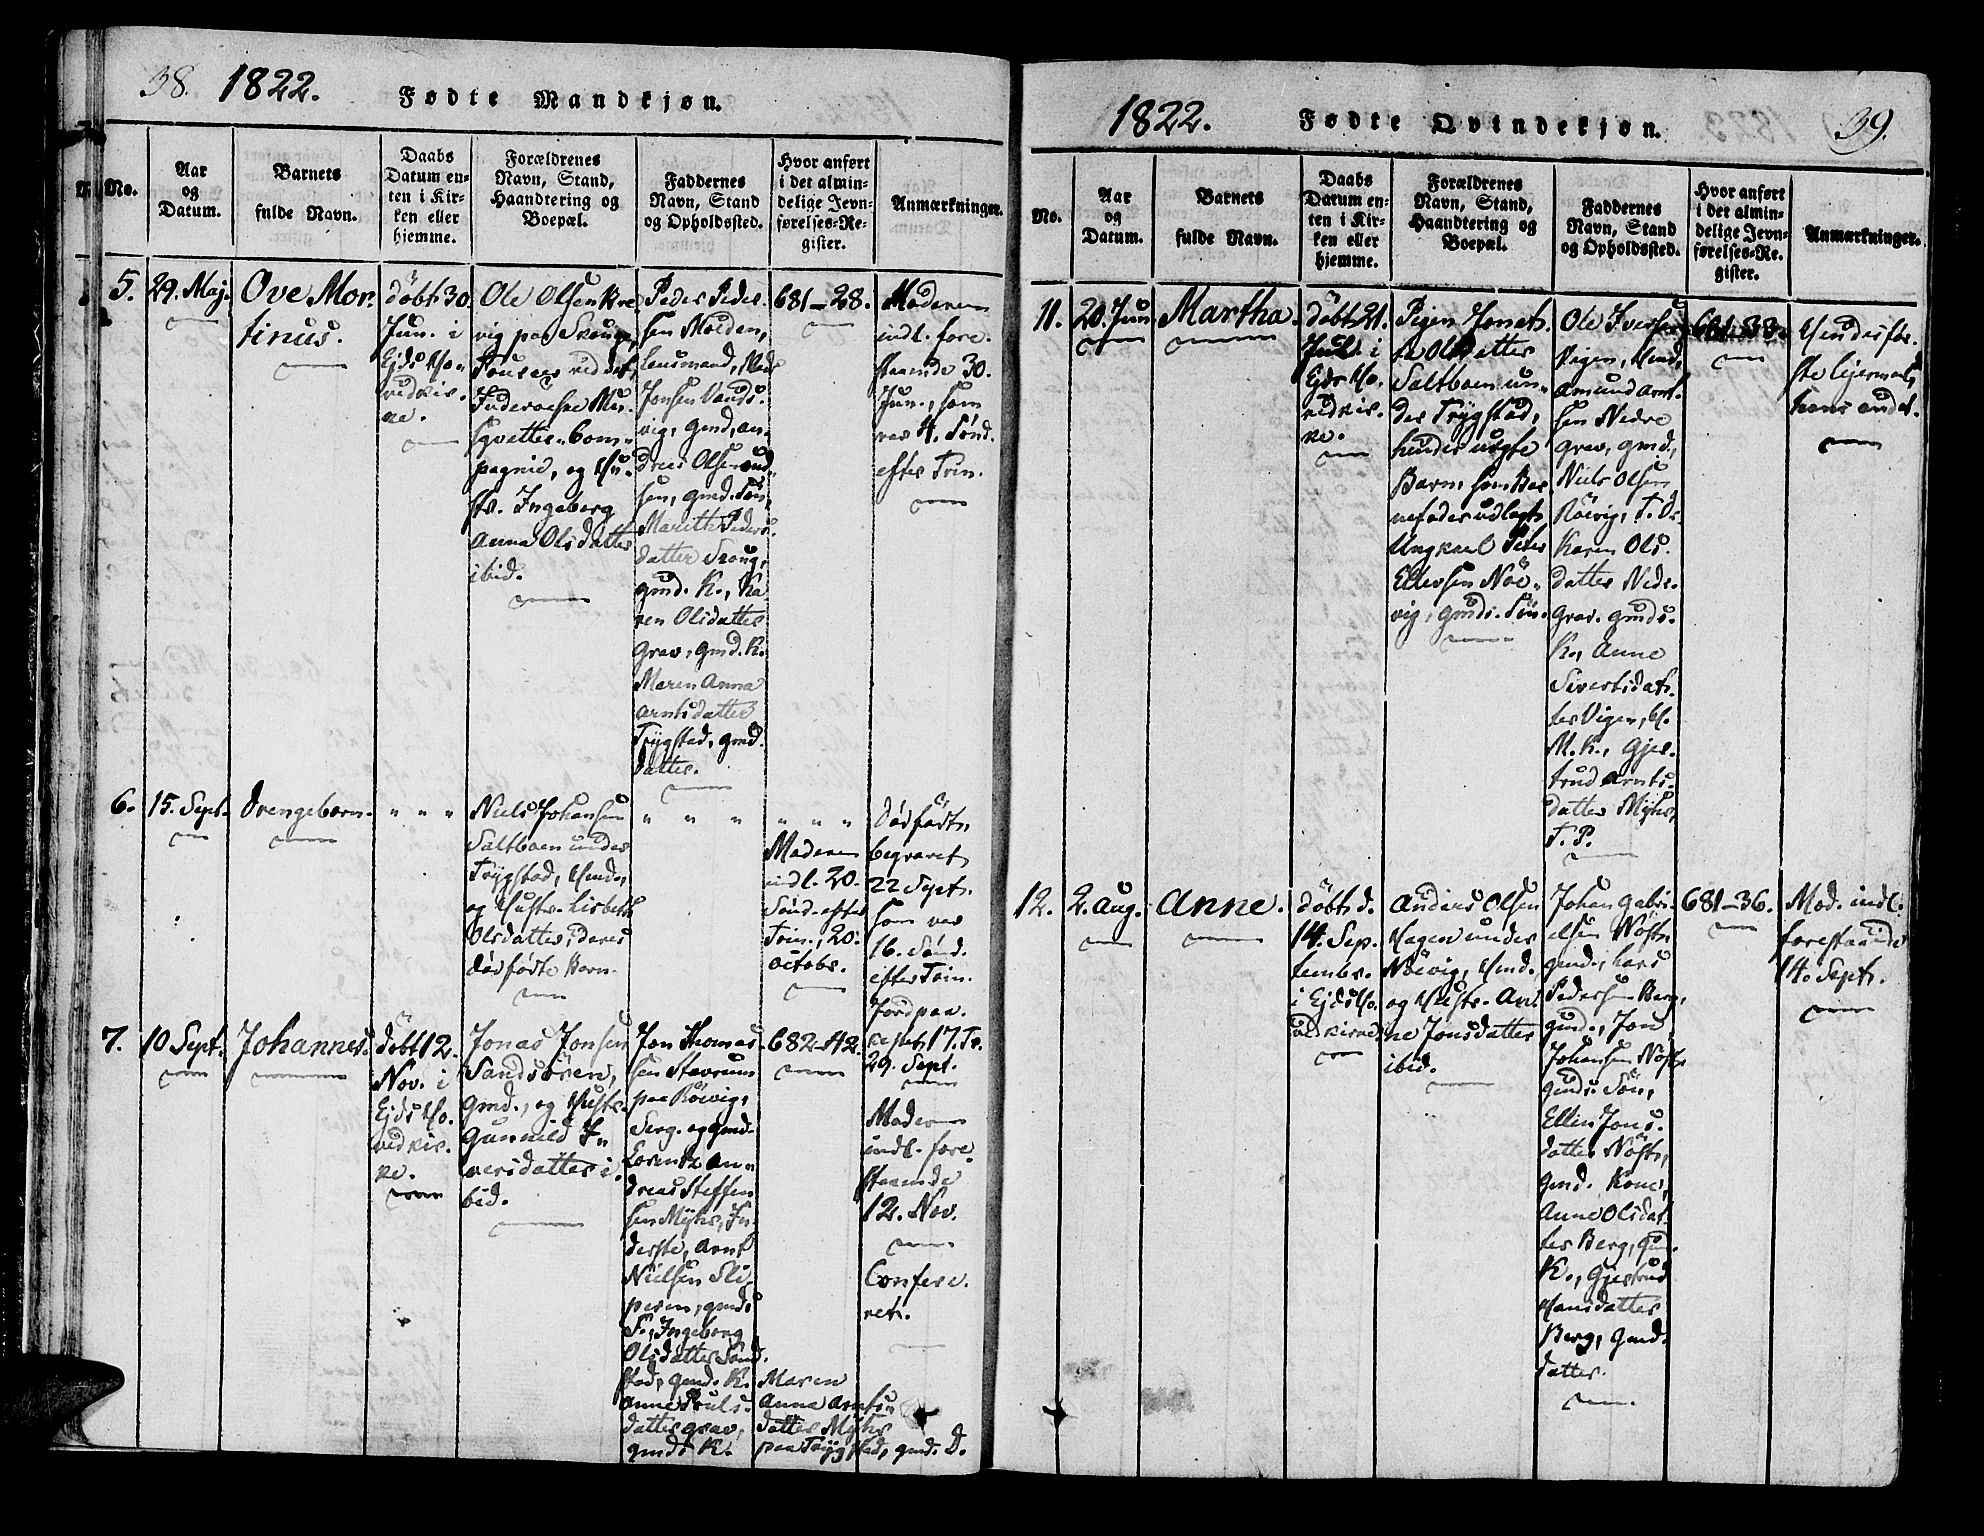 38. 1822. Fødte Mandkjøn.
No.
Aar
og
Datum.
Barnets
fulde Navn.
Daabs
Datum en-
ten i Kir-
ken eller
hjemme.
Forældrenes
Navn, Stand,
Haandtering og
Boepæl.
Faddernes
Navn, Stand
og Opholdssted.
Hvor anført
i det almin-
delige Jevn-
førelses-Re-
gister.
Anmærkninger.
5.
29. Maj.
Ove Mor-
tinus.
döbt 30
Jun. i
Ejds Ho-
vedkir-
ke.
Ole Olsen
vig paa
ved det
Inderöeske Mu-
sqvetter-Com-
pagnie, og Hu-
str. Ingeberg
Anna Olsdatter
ibid.
Peder Peder-
sen Molden,
Lensmand,
Jonsen Vands-
vig, gmd, An-
dreas Olsen
sen, gmd. Sön,
Marith Peders-
datter Skoug,
gmd. K., Ka-
ren Olsdatter
Grav, gmd. K.
Maren Anna
Arntsdatter
Trygstad, gmd.
datter.
681-28.
Moderen
indl. fore-
staaende 30.
Jun., som
var 4. Sönd.
efter Trin.
6.
15. Sept.
Drengebarn.
" " "
Niels Johansen
Saltboen under
Trygstad, Hmd.,
og Hustr. Lisbeth
Olsdatter, deres
dödfödte Barn.
" " "
" " "
Moderen
indl. 20.
Sönd. efter
Trin., 20.
Octobr.
Dödfödt,
begravet
22 Sept.
som var
16. Sönd.
efter Trin.
Jordpaa-
kastet 17. Tr.
29. Sept.
7.
10 Sept.
Johannes.
döbt 12.
Nov. i
Ejds Ho-
vedkir-
ke.
Jonas Jonsen
Sandsören,
gmd., og Hustr.
Gunnild I-
versdatter i-
bid.
Jon Thomas-
sen Stavrum
paa Röevig,
Serg. og gmd.
Lorentz An-
dreas Steffen-
sen Myhr, In-
derste, Arnt
Nielsen Sli-
peren, gmds
S., Ingeborg
Olsdatter Sund-
stad, gmd. K.
Anne Pouls-
datter Grav,
gmds K.
Maren
Anna Arnts-
datter Myhr
paa Trygstad, gmd. D.
682-42.
Moderen
indl. fore-
staaende
12. Nov.
Confere-
ret.
1822. Fødte Qvindekjøn. 39.
No.
Aar
og
Datum.
Barnets
fulde Navn.
Daabs
Datum en-
ten i Kir-
ken eller
hjemme.
Forældrenes
Navn, Stand,
Haandtering og
Boepæl.
Faddernes
Navn, Stand
og Opholdssted.
Hvor anført
i det almin-
delige Jevn-
førelses-Re-
gister.
Anmærkninger.
11.
20. Jun.
Martha.
döbt 21.
Jul. i
Ejds Ho-
vedkir-
ke.
Pigen
Olsdatter
Saltboen un-
der Trygstad,
hendes uegte
Barn, som Bar-
nefader udlagt
Ungkarl Peder
Ellevsen Röe-
vig, gmds. Sön.
Ole Iversen
Vigen, Hmd,
Amund Arnt-
sen Nedre
Grav, gmd.,
Niels Olsen
Röevig, T. Dr.
Karen Ols-
datter Nedr.
Grav. gmds.
K., Anne
Sivertsdat-
ter Vigen, H.
M. K., Gjer-
trud Arnts-
datter Myhr,
T. P.
681-33.
Hendes för-
ste Lejermaal,
hans andet.
12.
2. Aug.
Anne.
döbt d.
14. Sep-
tembr.
i Ejds Ho-
vedkirke.
Anders Olsen
Hagen under
Röevig, Hmd.
og Hustr. An-
ne Jonsdatter
ibid.
Johan Gabri-
elsen Nöst,
gmd., Lars
Pedersen Berg,
gmd., Jon
Johansen Nöst
gmds Sön,
Ellen Jons-
datter Nöst,
gmd. Kone,
Anne Olsdat-
ter Berg, gmd.
K., Gjertrud
Hansdatter
Berg, gmd.
datter.
681-36.
Mod. indl.
forestaaende
14. Sept.